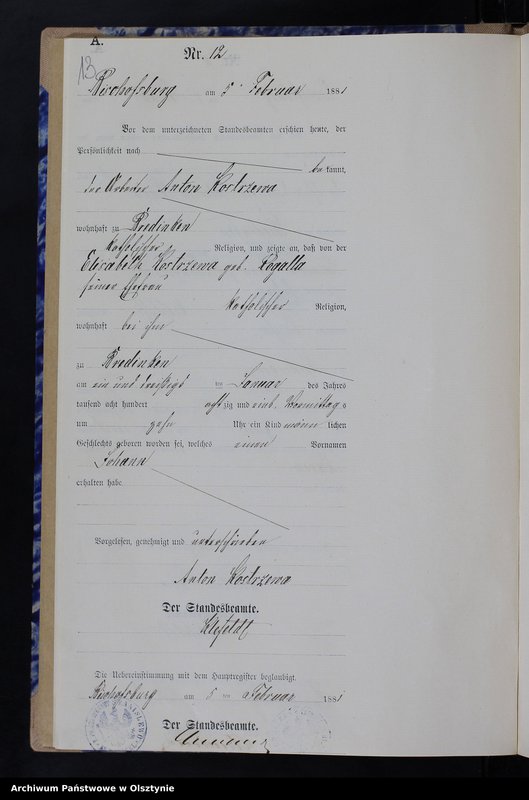 A.
13
Nr. 12
Bischofsburg am 5. Februar 1881
Vor dem unterzeichneten Standesbeamten erschien heute, der
Persönlichkeit nach
be kannt,
der Arbeiter Anton Kostrzewa
wohnhaft zu Bredinken
katholischer Religion, und zeigte an, daß von der
Elisabeth Kostrzewa geb. Rogalla
seiner Ehefrau
katholischer Religion,
wohnhaft bei ihm
zu Bredinken
am ein und dreißigsten Januar des Jahres
tausend acht hundert achtzig und eins, Vormittags
um zehn Uhr ein Kind männlichen
Geschlechts geboren worden sei, welches einen Vornamen
Johann
erhalten habe
Vorgelesen, genehmigt und unterschrieben
Anton Kostrzewa
Der Standesbeamte.
Klefeldt
Die Uebereinstimmung mit dem Hauptregister beglaubigt.
Bischofsburg am 5 ten Februar 1881
Der Standesbeamte.
Archiwum Państwowe w Olsztynie